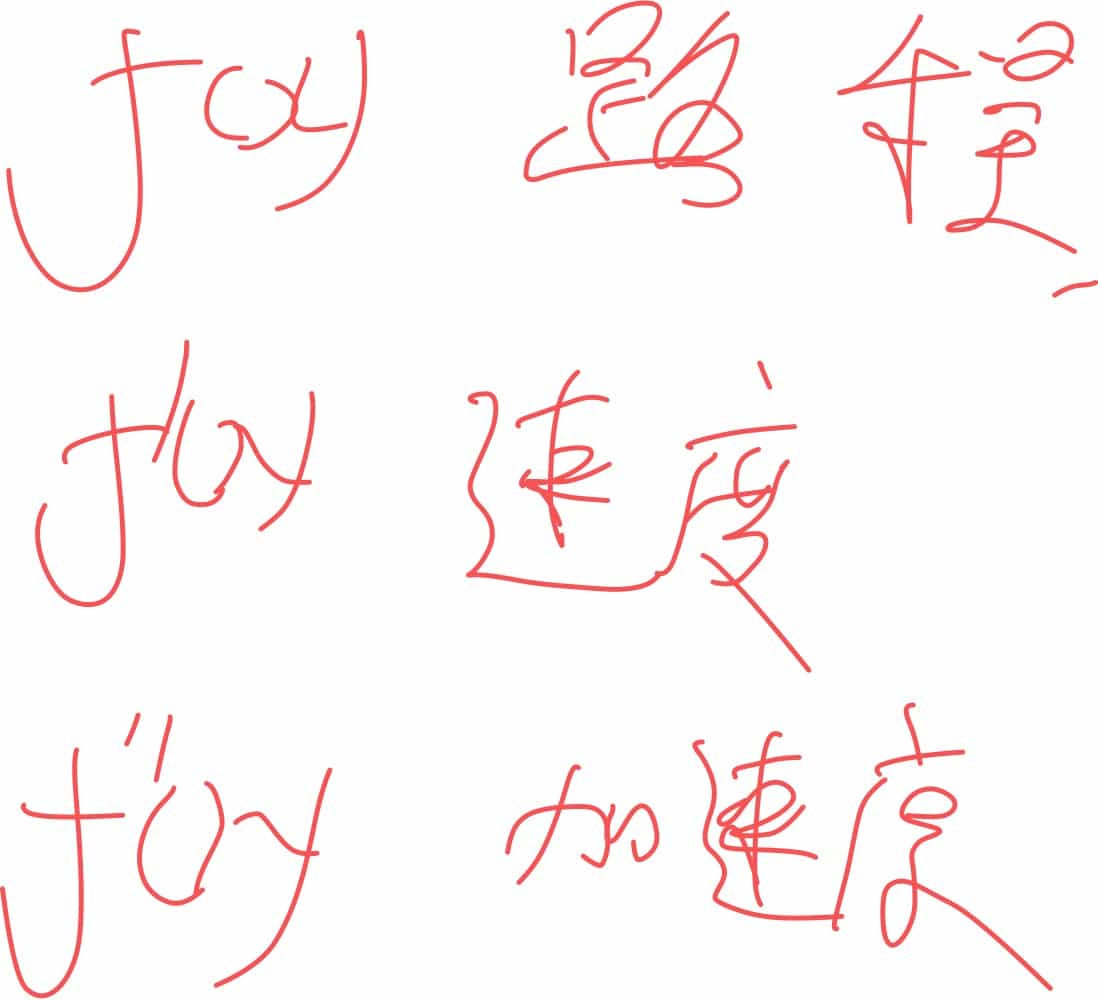 f(x) 路程
f'(x) 速度
f''(x) 加速度